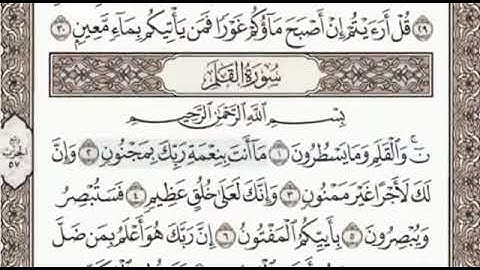 ٢٩ قُلْ أَرَءَيْتُمْ إِنْ أَصْبَحَ مَآؤُكُمْ غَوْرًا فَمَن يَأْتِيكُم بِمَآءٍ مَّعِينٍۭ ٣٠
سُورَةُ القَلَمِ
بِسْمِ اللَّهِ الرَّحْمَٰنِ الرَّحِيمِ
نٓ ۚ وَالْقَلَمِ وَمَا يَسْطُرُونَ ١ مَآ أَنتَ بِنِعْمَةِ رَبِّكَ بِمَجْنُونٍ ٢ وَإِنَّ
لَكَ لَأَجْرًا غَيْرَ مَمْنُونٍ ٣ وَإِنَّكَ لَعَلَىٰ خُلُقٍ عَظِيمٍ ٤ فَسَتُبْصِرُ
وَيُبْصِرُونَ ٥ بِأَييِّكُمُ الْمَفْتُونُ ٦ إِنَّ رَبَّكَ هُوَ أَعْلَمُ بِمَن ضَلَّ
ربع
الحزب
٥٧